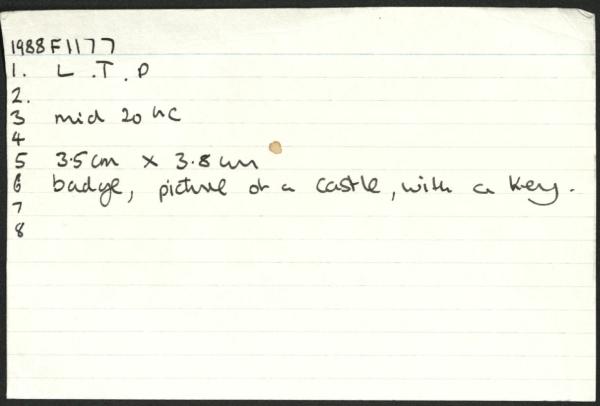 1988F1177
1. L.T.D
2.
3 mid 20thC
4
5 3.5cm x 3.8cm
6 badge, picture of a castle, with a key.
7
8